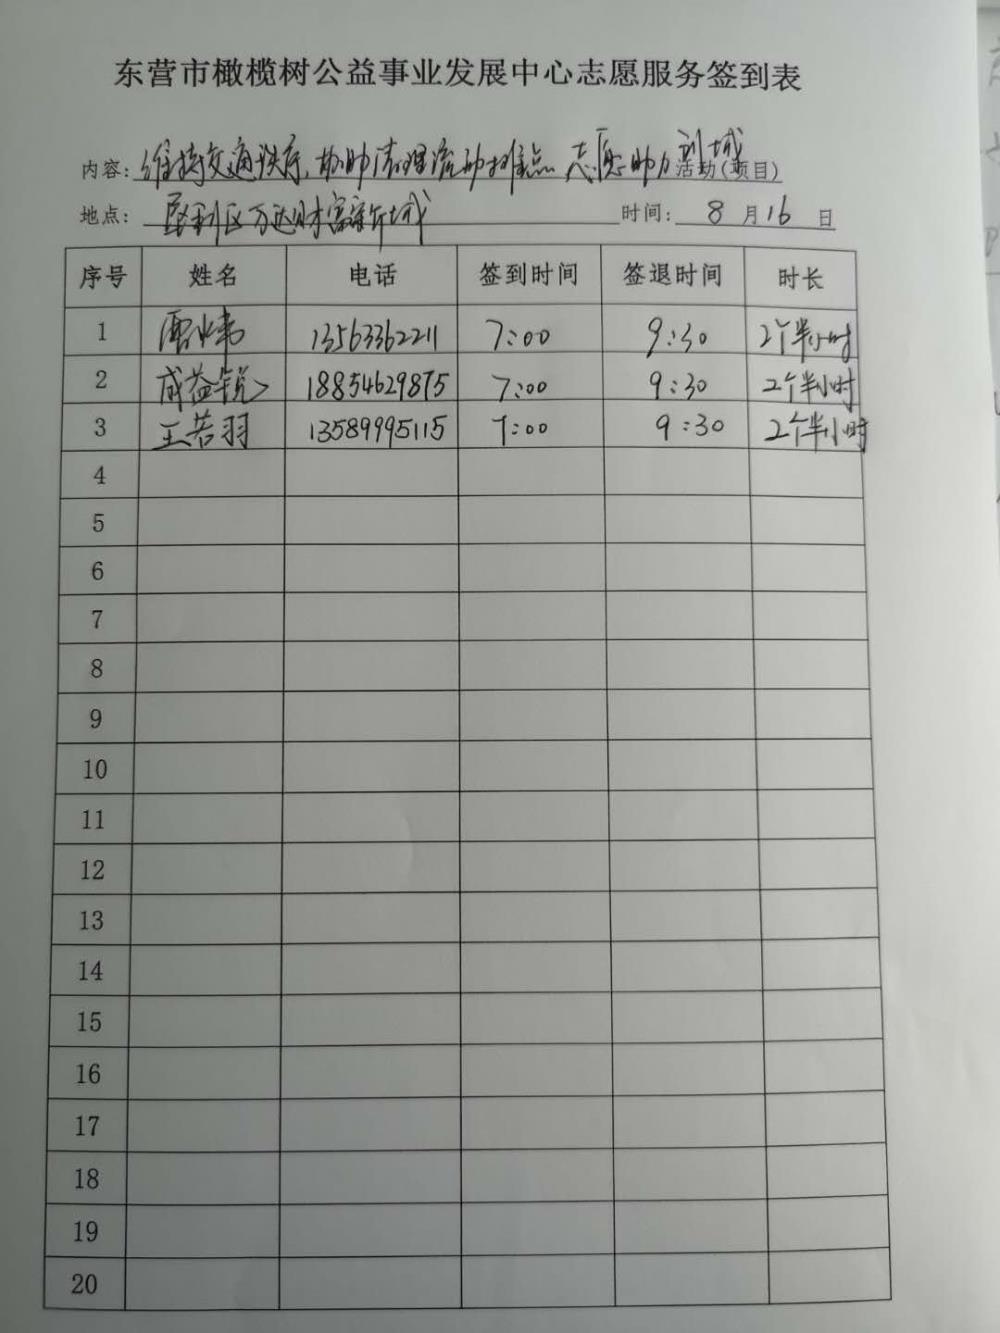 东营市橄榄树公益事业发展中心志愿服务签到表
内容: 维持交通秩序,协助清理流动摊点 志愿助力创城 活动(项目)
地点: 垦利区万达财富新城 时间: 8 月 16 日
序号 姓名 电话 签到时间 签退时间 时长
1 13563362211 7:00 9:30 2个半小时
2 成益锐 18854629875 7:00 9:30 2个半小时
3 王若羽 13589995115 7:00 9:30 2个半小时
4
5
6
7
8
9
10
11
12
13
14
15
16
17
18
19
20